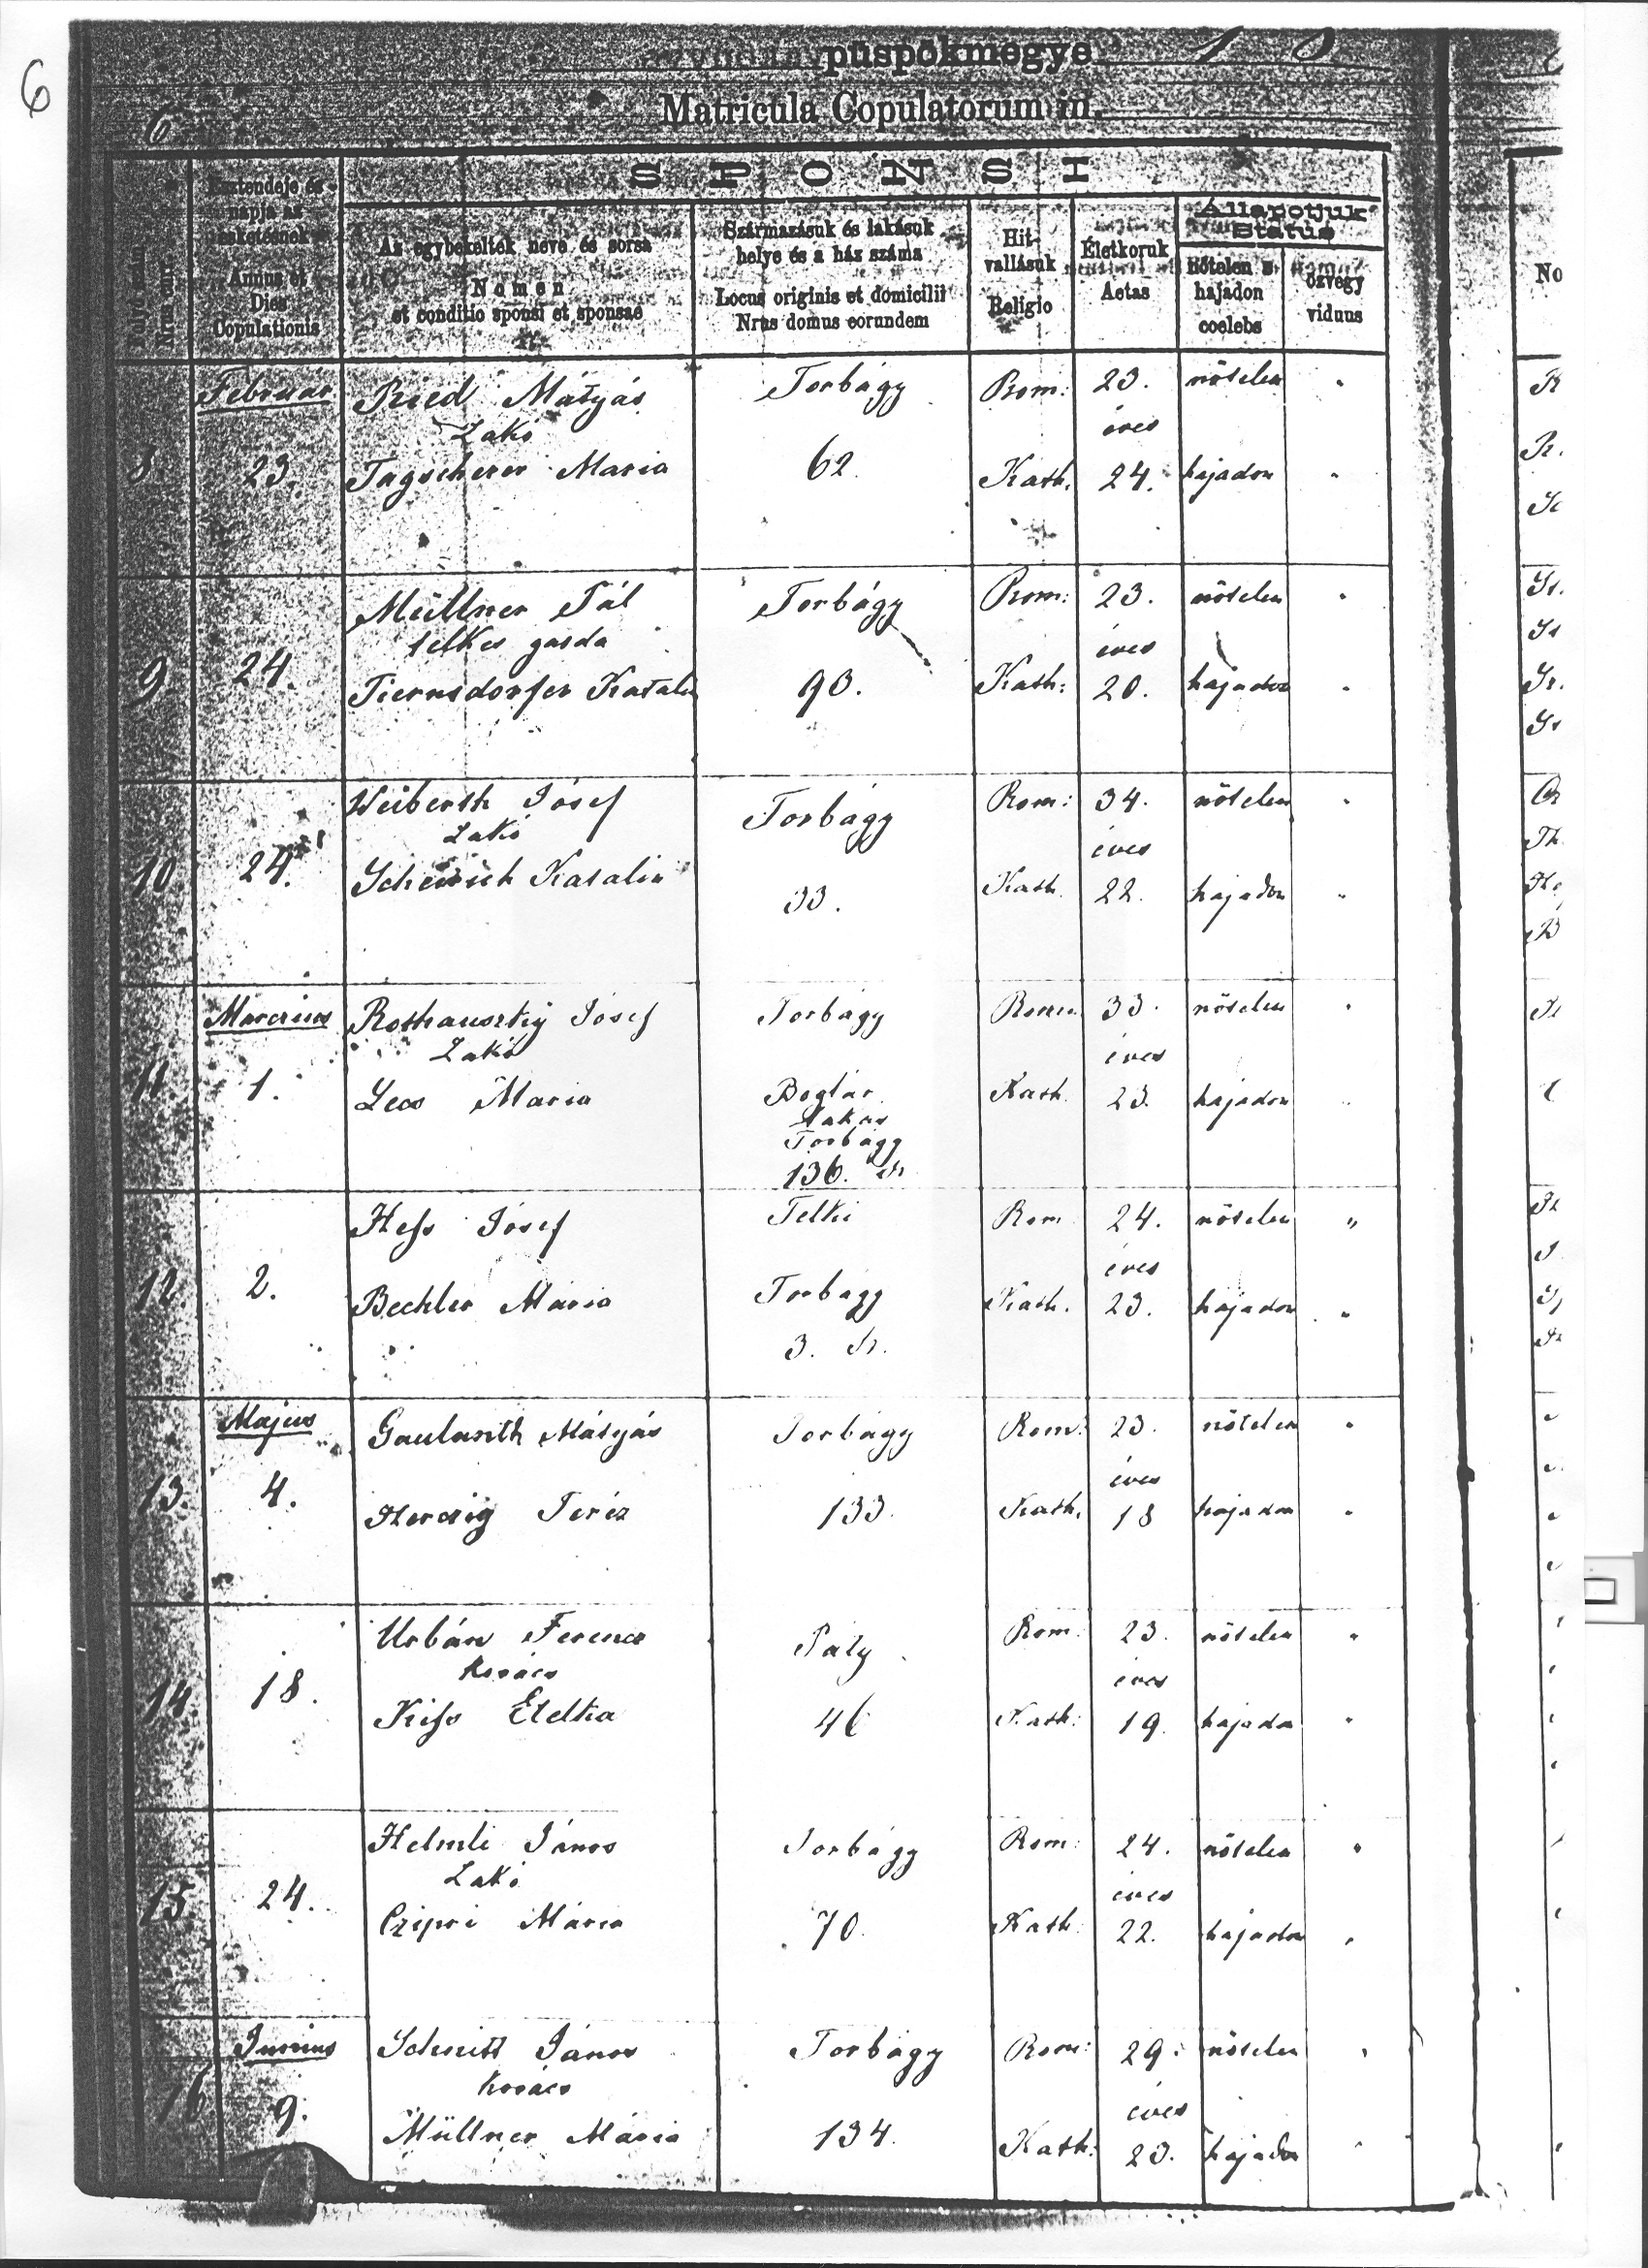 6
püspökmegye
6
Matricula Copulatorum in
SPONSI
Esztendeje és napja az esketésnek
Annus et Dies Copulationis
Az egybekeltek neve és sorsa
Nomen et conditio sponsi et sponsae
Származásuk és lakásuk helye és a ház száma
Locus originis et domicilii Nrus domus eorundem
Hitvallásuk
Religio
Életkoruk
Aetas
Állapotjuk
Status
nőtelen s hajadon
coelebs
özvegy
viduus
No
Február Ried Mátyás Torbágy Rom: 23. nőtelen
Lakó éves
8 23. Tagscherer Maria 62. Kath. 24. hajadon
Müllner Pál Torbágy Rom: 23. nőtelen
telkes gazda éves
9 24. Tiernsdorfer Katalin 90. Kath: 20. hajadon
Weiberth Jósef Torbágy Rom: 34. nőtelen
Lakó éves
10 24. Katalin 33. Kath. 22. hajadon
Marczius Rothauszky Jósef Torbágy Rom 33. nőtelen
Lakó éves
11 1. Maria Boglár Kath. 23. hajadon
lakos
Torbágy
136. sz.
Hess Jósef Telki Rom 24. nőtelen "
éves
12. 2. Bechler Mária Torbágy Kath. 23. hajadon "
3. sz.
Majus Gaulanth Mátyás Torbágy Rom: 23. nőtelen
éves
13. 4. Herczig Teréz 133. Kath. 18 hajadon
Urbán Ferencz Páty Rom: 23. nőtelen
Kovács éves
14. 18. Kiss Etelka 46 Kath: 19. hajadon
Helmli János Torbágy Rom: 24. nőtelen
Lakó éves
15. 24. Czipri Mária 70. Kath. 22. hajadon
Junius Schmitt János Torbágy Rom: 29. nőtelen
Kovács éves
16 9. Müllner Mária 134. Kath: 23. hajadon